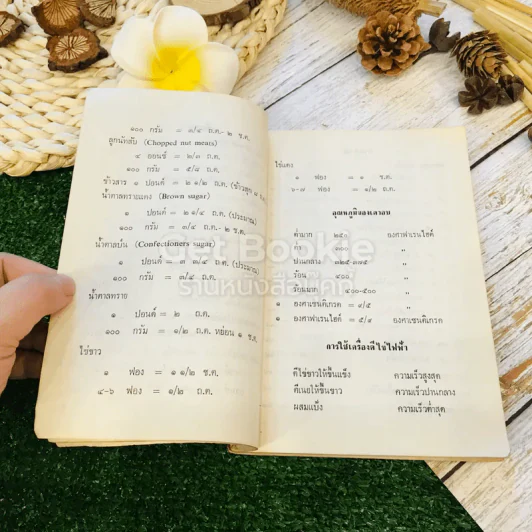 ๑๐๐ กรัม = ๓/๔ ถ.ต.- ๒ ช.ต.
ลูกนัทสับ (Chopped nut meats)
๔ ออนซ์ = ๒/๓ ถ.ต.
๑๐๐ กรัม = ๕/๘ ถ.ต.
ข้าวสาร ๑ ปอนด์ = ๒ ๑/๒ ถ.ต.
น้ำตาลทรายแดง (Brown sugar)
๑ ปอนด์ = ๒ ๑/๔ ถ.ต. (ประมาณ)
๑๐๐ กรัม = ๓/๔ ถ.ต.- ๒ ช.ต.
น้ำตาลป่น (Confectioners sugar)
๑ ปอนด์ = ๓ ถ.ต. (ประมาณ)
๑๐๐ กรัม = ๓/๔ ถ.ต.
น้ำตาลทราย
๑ ปอนด์ = ๒ ถ.ต.
๑๐๐ กรัม = ๑/๒ ถ.ต. หย่อน ๑ ช.ต.
ไข่ขาว
๑ ฟอง = ๑ ๑/๒ ช.ต.
๔-๖ ฟอง = ๑/๒ ถ.ต.
ไข่แดง
๑ ฟอง = ๑ ช.ต.
๖-๗ ฟอง = ๑/๒ ถ.ต.
อุณหภูมิของเตาอบ
ต่ำมาก = ๒๕๐ องศาฟาเรนไฮต์
ต่ำ = ๓๐๐ "
ปานกลาง = ๓๒๕-๓๗๕ "
ร้อน = ๔๐๐ "
ร้อนมาก = ๔๐๐-๕๐๐ "
๑ องศาเซนติเกรด = ๙/๕
๑ องศาฟาเรนไฮต์ = ๕/๙ องศาเซนติเกรด
การใช้เครื่องตีไข่ไฟฟ้า
ตีไข่ขาวให้ขึ้นแข็ง ความเร็วสูงสุด
ตีเนยให้ขึ้นขาว ความเร็วปานกลาง
ผสมแป้ง ความเร็วต่ำสุด
Get Bookie
ร้านหนังสือเก็ตบุ๊คกี้